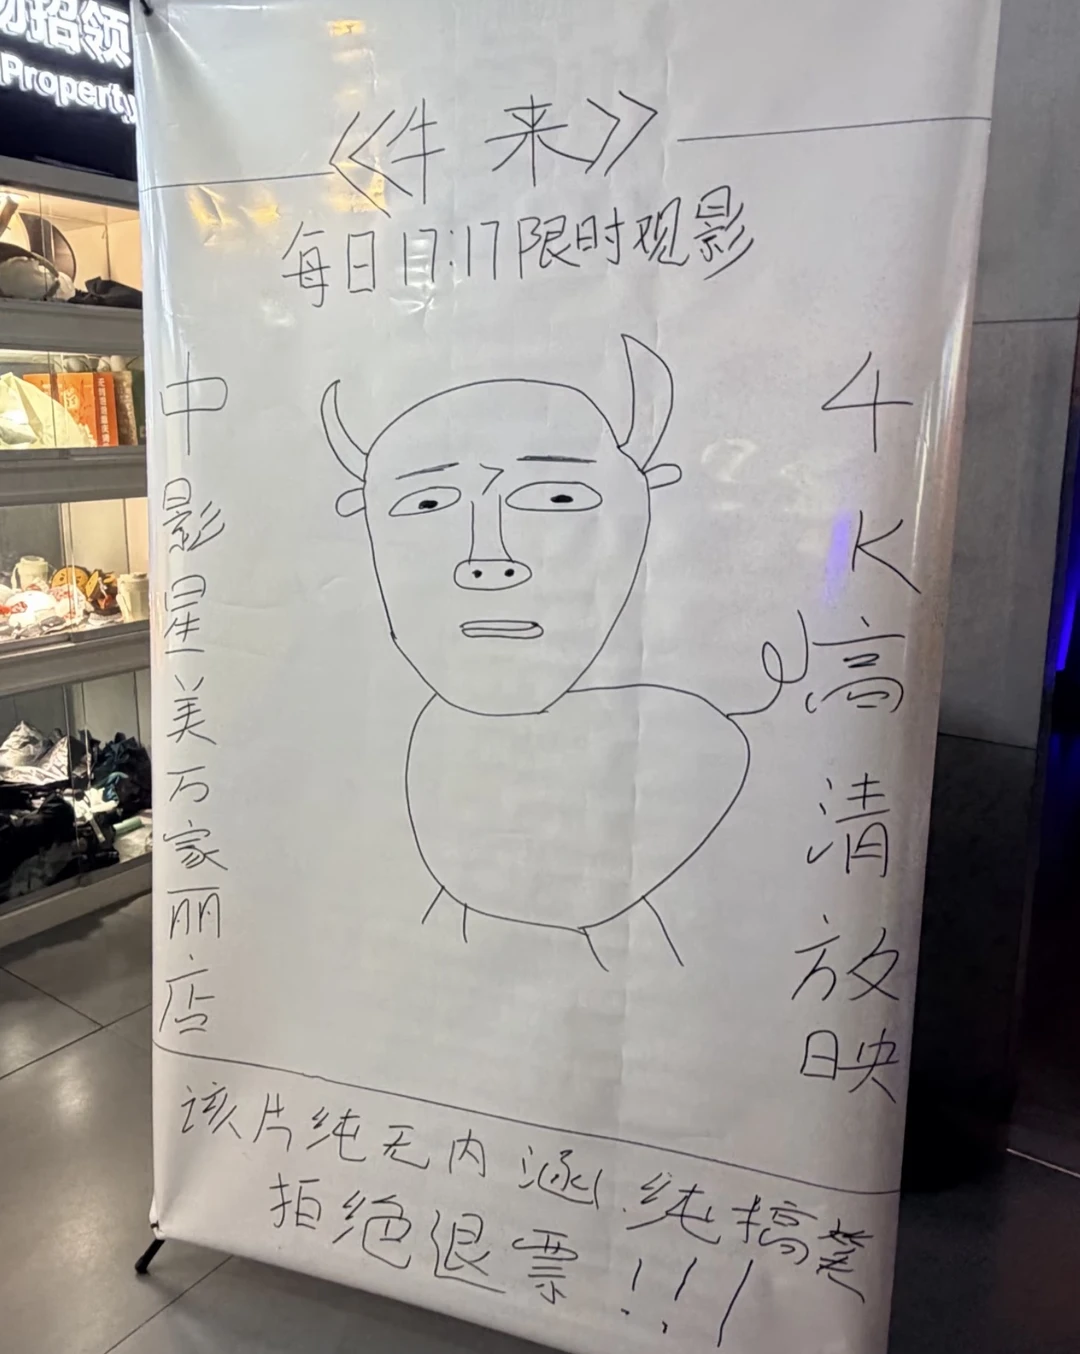 物招领
Property
《牛来》
每日17:17限时观影
中影星美万家丽店
4K高清放映
该片纯无内涵纯搞笑
拒绝退票!!!